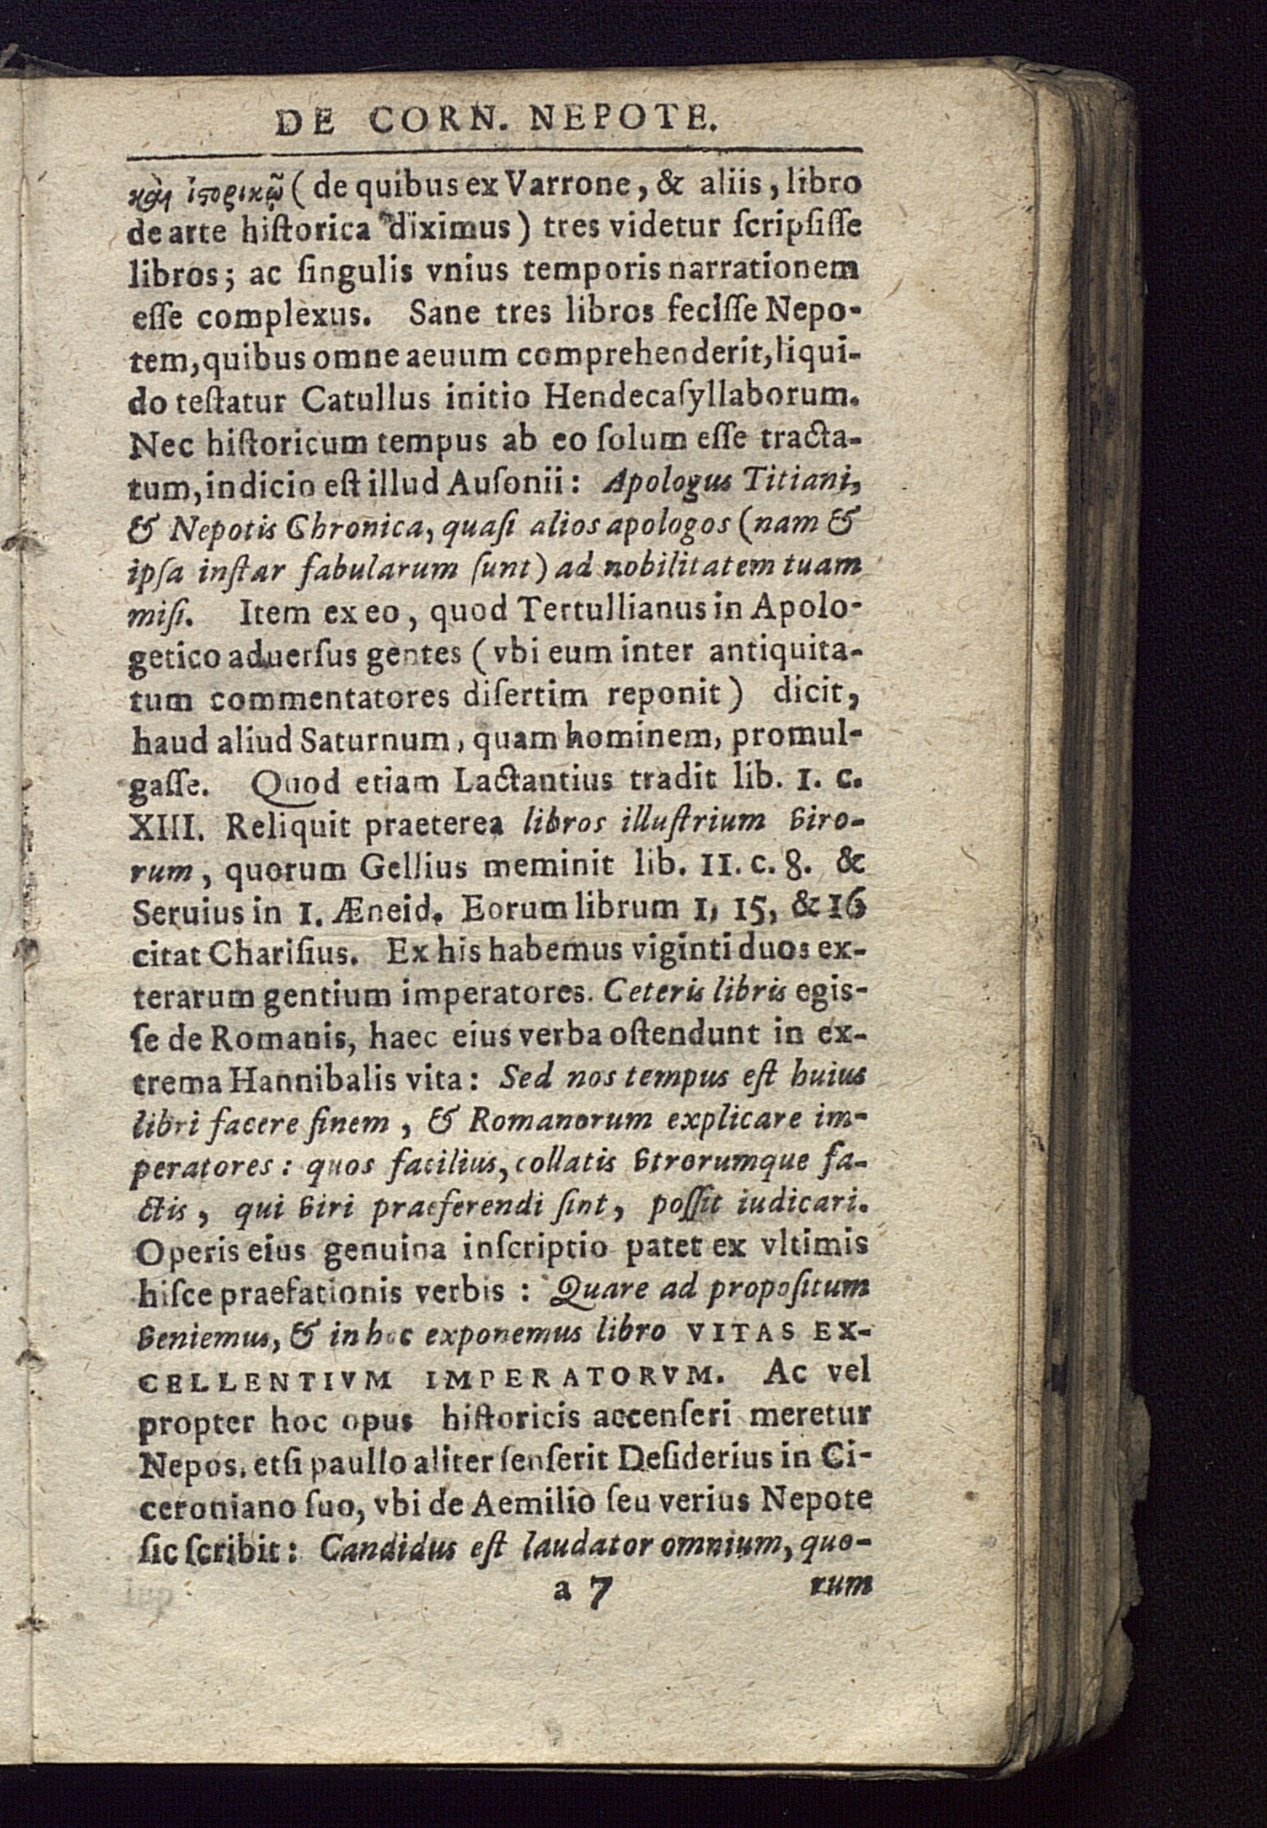 DE CORN. NEPOTE.
καὶ ἱστορικῷ (de quibus ex Varrone, & aliis, libro
de arte hiſtorica diximus) tres videtur ſcripſiſſe
libros; ac ſingulis vnius temporis narrationem
eſſe complexus. Sane tres libros feciſſe Nepo-
tem, quibus omne aeuum comprehenderit, liqui-
do teſtatur Catullus initio Hendecaſyllaborum.
Nec hiſtoricum tempus ab eo ſolum eſſe tracta-
tum, indicio eſt illud Auſonii: Apologus Titiani,
& Nepotis Chronica, quaſi alios apologos (nam &
ipſa inſtar fabularum ſunt) ad nobilitatem tuam
miſi. Item ex eo, quod Tertullianus in Apolo-
getico aduerſus gentes (vbi eum inter antiquita-
tum commentatores diſertim reponit) dicit,
haud aliud Saturnum, quam hominem, promul-
gaſſe. Quod etiam Lactantius tradit lib. I. c.
XIII. Reliquit praeterea libros illuſtrium viro-
rum, quorum Gellius meminit lib. 11. c. 8. &
Seruius in I. Æneid. Eorum librum 1, 15, & 16
citat Chariſius. Ex his habemus viginti duos ex-
terarum gentium imperatores. Ceteris libris egiſ-
ſe de Romanis, haec eius verba oſtendunt in ex-
trema Hannibalis vita: Sed nos tempus eſt huius
libri facere finem, & Romanorum explicare im-
peratores: quos facilius, collatis vtrorumque fa-
ctis, qui viri praeferendi ſint, poſſit iudicari.
Operis eius genuina inſcriptio patet ex vltimis
hiſce praefationis verbis: Quare ad propoſitum
veniemus, & in hoc exponemus libro VITAS EX-
CELLENTIVM IMPERATORVM. Ac vel
propter hoc opus hiſtoricis accenſeri meretur
Nepos, etſi paullo aliter ſenſerit Deſiderius in Ci-
ceroniano ſuo, vbi de Aemilio ſeu verius Nepote
ſic ſcribit: Candidus eſt laudator omnium, quo-
a 7 rum